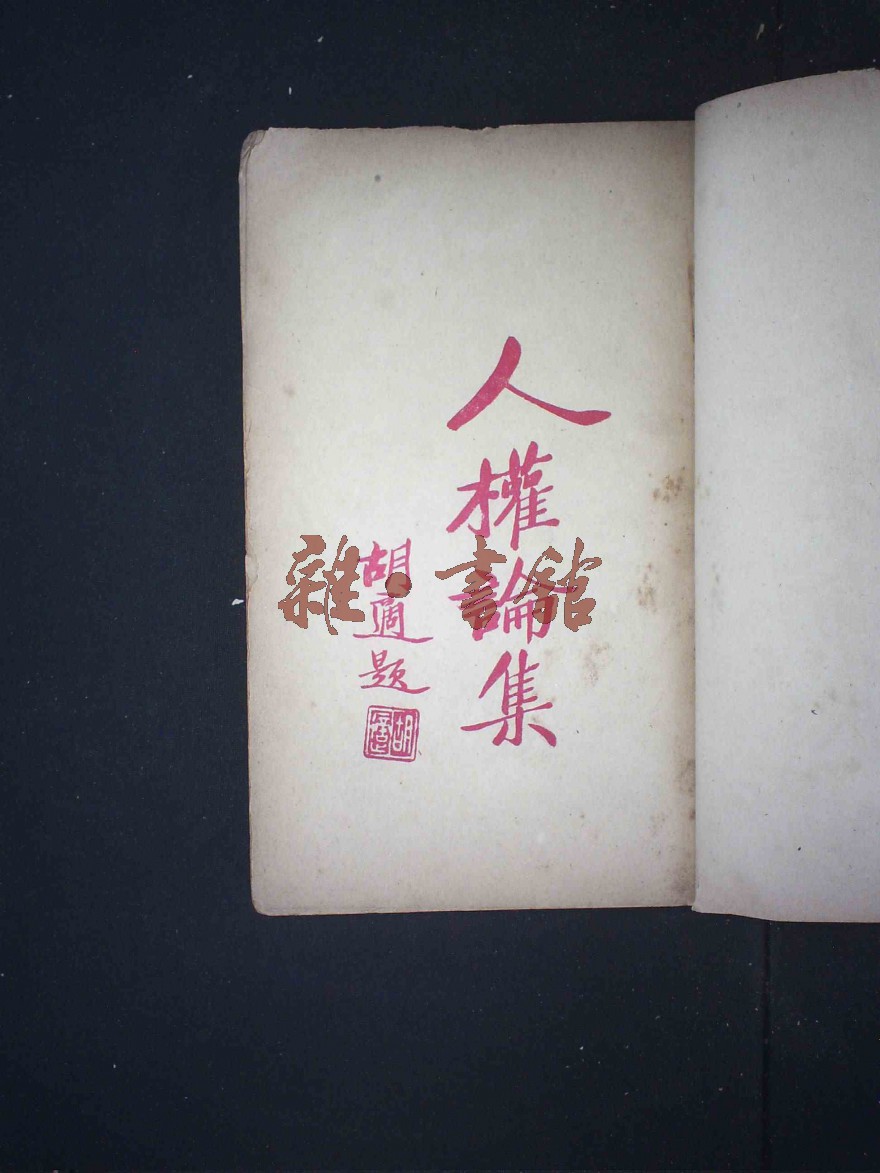 人權論集
胡適題
胡適
雜·書館